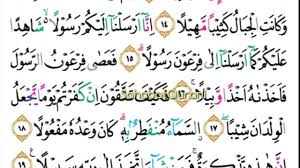 وَكَانَتِ الْجِبَالُ كَثِيْبًا مَّهِيْلًا ١٤ اِنَّآ اَرْسَلْنَآ اِلَيْكُمْ رَسُوْلًا ەۙ شَاهِدًا
عَلَيْكُمْ كَمَآ اَرْسَلْنَآ اِلٰى فِرْعَوْنَ رَسُوْلًا ١٥ فَعَصٰى فِرْعَوْنُ الرَّسُوْلَ
فَاَخَذْنٰهُ اَخْذًا وَّبِيْلًا ١٦ فَكَيْفَ تَتَّقُوْنَ اِنْ كَفَرْتُمْ يَوْمًا يَّجْعَلُ
الْوِلْدَانَ شِيْبًا ١٧ السَّمَاۤءُ مُنْفَطِرٌۢ بِهٖ ۗ كَانَ وَعْدُهٗ مَفْعُوْلًا ١٨